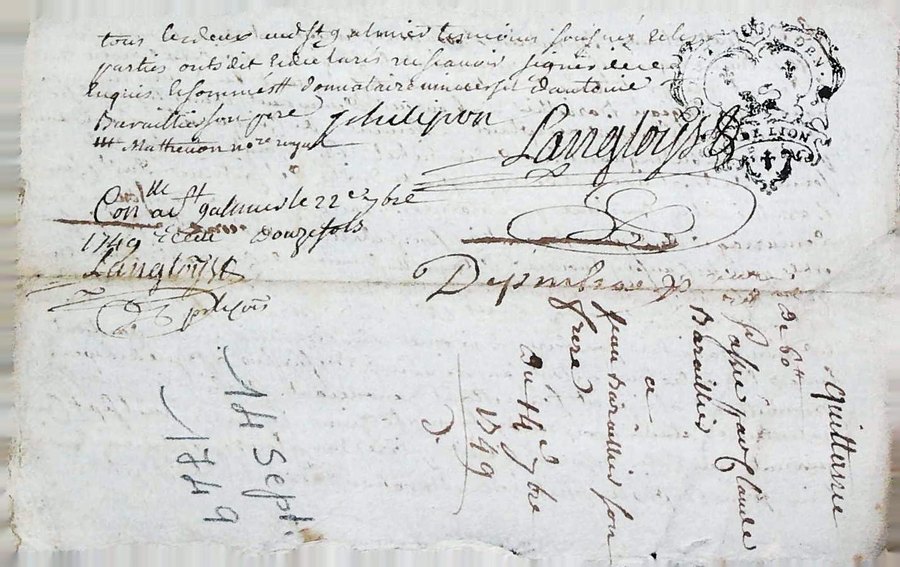 tous les deux aud st galmier tesmoins soignés et les
parties ont dit et declarés ne scavoir signer de ce
Enquis et sommés donnataire universel d'antoine
Baraillier son père
Philipon
Langloys
Mathevon no.re royal
DE LION
Con.lle a st galmier le 22e 7bre
1749 Reçu douze sols
Langloys
philipon
Quittance
de 60
passée par Claude
Baraillier
a
Jean Baraillier son
frere
du 14e 7bre
1749
14 sept
1749